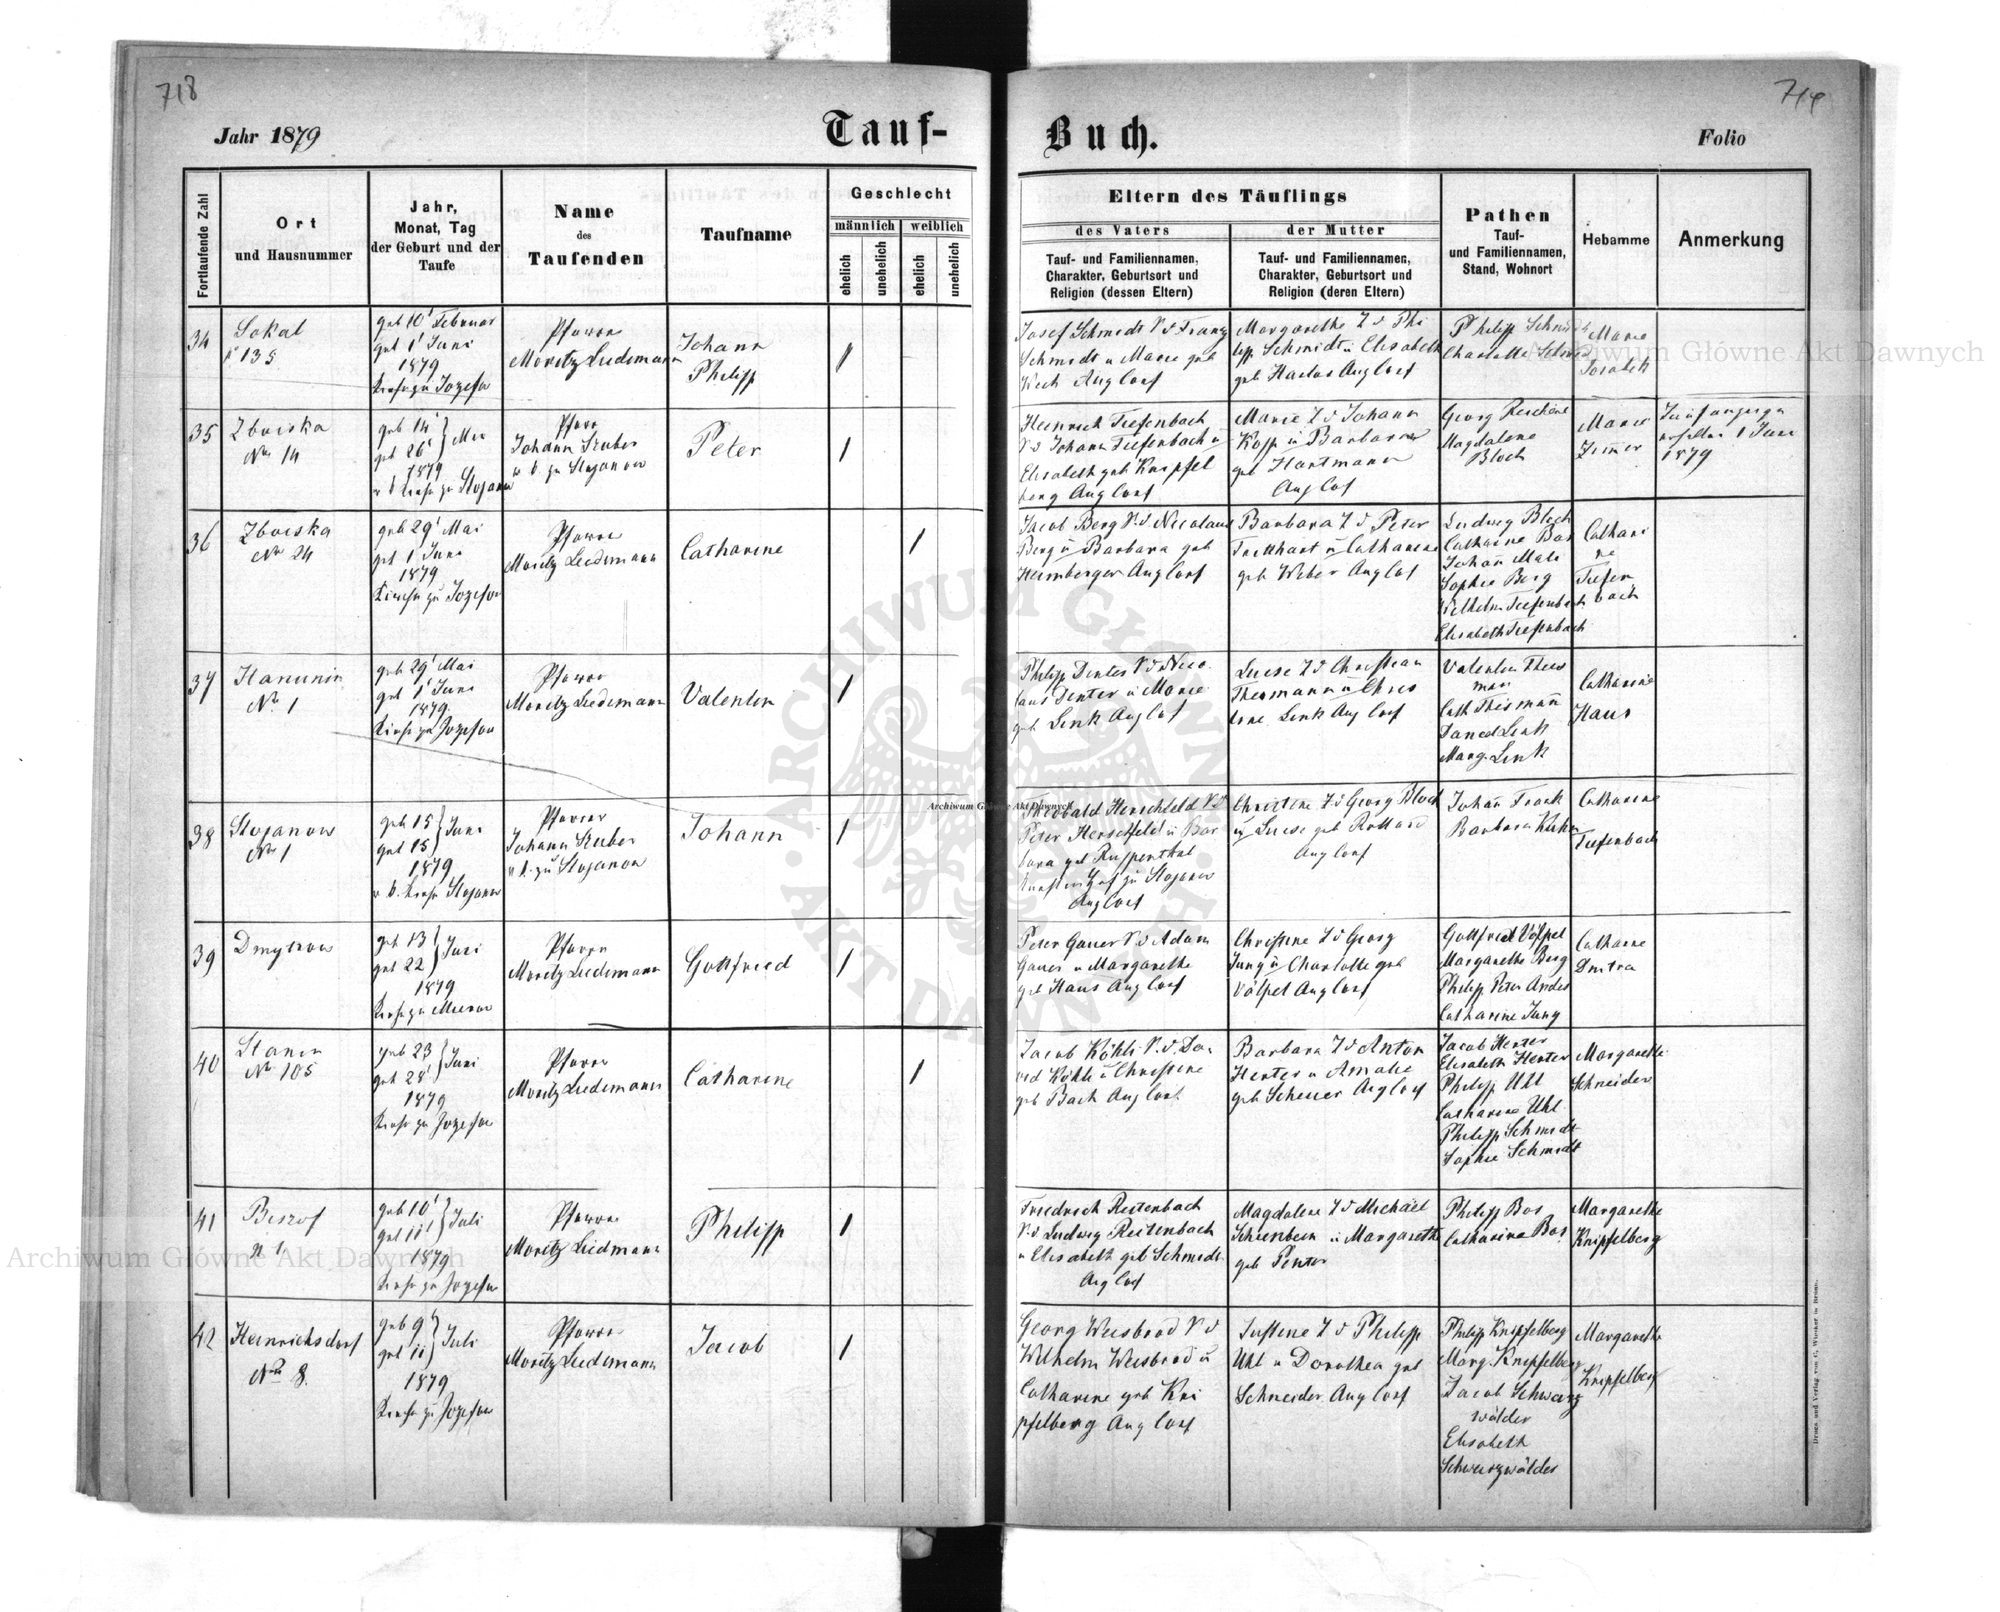 718
719
Jahr 1879
Tauf-
Buch.
Folio
Fortlaufende Zahl
Ort
und Hausnummer
Jahr,
Monat, Tag
der Geburt und der
Taufe
Name
des
Taufenden
Taufname
Geschlecht
männlich
weiblich
ehelich
unehelich
ehelich
unehelich
Eltern des Täuflings
des Vaters
Tauf- und Familiennamen,
Charakter, Geburtsort und
Religion (dessen Eltern)
der Mutter
Tauf- und Familiennamen,
Charakter, Geburtsort und
Religion (deren Eltern)
Pathen
Tauf-
und Familiennamen,
Stand, Wohnort
Hebamme
Anmerkung
34
Sokal
135
geb 10' Februar
get 1' Juni
1879
Kirche zu Jozefow
Pfarrer
Moritz Liedemann
Johann
Philipp
Josef Schmidt V d Franz
Schmidt u Marie geb
Aug Conf
Margarethe T d Phi
lipp Schmidt u Elisabeth
geb Aug Conf
Philipp Schmidt
Charlotte
Marie
35
Zboiska
No 14
geb 14' } Mai
get 26'
1879
Kirche zu Stojanow
Pfarr
Johann Stuber
zu Stojanow
Peter
1
Heinrich Tiefenbach
V d Johann Tiefenbach u
Elisabeth geb Knipfel
berg Aug Conf
Marie T d Johann
Kopp u Barbara
geb Hartmann
Aug Cof
Georg
Magdalena
Bloch
Marie
Zimer
1 Juni
1879
36
Zboiska
No 24
geb 29' Mai
get 1' Juni
1879
Kirche zu Jozefow
Pfarrer
Moritz Liedemann
Catharine
1
Jacob Berg V. d. Nicolaus
Berg u Barbara geb
Heimberger Aug Conf
Barbara T d Peter
u Catharine
geb Weber Aug Cof
Ludwig Bloch
Catharine Bas
Johan
Sophie Berg
Wilhelm Tiefenbach
Elisabeth Tiefenbach
Cathari
ne
Tiefen
bach
37
Hanunin
No 1
geb 29' Mai
get 1' Juni
1879.
Kirche zu Jozefow
Pfarrer
Moritz Liedemann
Valentin
1
Philipp Denter V d Nico
laus Denter u Marie
geb Link Aug Cof
Luise T d Christian
Theismann u Chris
tine Link Aug Conf
Valentin Theis
man
Cath Theisman
Daniel Link
Marg. Link
Catharine
Haus
38
Stojanow
No 1
geb 15 } Juni
get 15
1879
Kirche Stojanow
Pfarrer
Johann Stuber
zu Stojanow
Johann
1
Theobald Herschfeld V d
Peter Herschfeld u Bar
bara geb Ruppenthal
zu Stojanow
Aug Conf
Christine T d Georg Bloch
u Luise geb
Aug Conf
Johan Frank
Barbara Kuhn
Catharine
Tiefenbach
39
Dmytrow
geb 13' } Juni
get 22
1879
Kirche zu Mierow
Pfarrer
Moritz Liedemann
Gottfried
1
Peter Gauer V d Adam
Gauer u Margarethe
geb Haus Aug Conf
Christine T d Georg
Jung u Charlotte geb
Völpel Aug Conf
Gottfried Völpel
Margarethe Berg
Philipp Peter Andes
Catharine Jung
Catharine
Dmitra
40
Stanin
No 105
geb 23 } Juni
get 28'
1879
Kirche zu Jozefow
Pfarrer
Moritz Liedemann
Catharine
1
Jacob Köhli V. d. Da
vid Köhli u Christine
geb Bach Aug Conf.
Barbara T d Anton
Herter u Amalie
geb Scheuer Aug Conf
Jacob Herter
Elisabeth Herter
Philipp Uhl
Catharine Uhl
Philipp Schmidt
Sophie Schmidt
Margarethe
Schneider
41
geb 10' } Juli
get 11'
1879
Kirche zu Jozefow
Pfarrer
Moritz Liedmann
Philipp
1
Friedrich Reitenbach
V. d. Ludwig Reitenbach
u Elisabeth geb Schmidt
Aug Conf
Magdalena T d Michael
Scheenbein u Margarethe
geb
Philipp Bos
Catharina Bos
Margarethe
Knipfelberg
42
Heinrichsdorf
No 8.
geb 9' } Juli
get 11
1879
Kirche zu Jozefow
Pfarrer
Moritz Liedemann
Jacob
1
Georg Weisbrod V d
Wilhelm Weisbrod u
Catharine geb Kni
pfelberg Aug Conf
Justine T d Philipp
Uhl u Dorothea geb
Schneider Aug Conf
Philipp Knipfelberg
Marg. Knipfelberg
Jacob Schwarz
wälder
Elisabeth
Schwarzwälder
Margarethe
Knipfelberg
Druck und Verlag von C. Winiker in Brünn.
Archiwum Główne Akt Dawnych
Archiwum Główne Akt Dawnych
Archiwum Główne Akt Dawnych
ARCHIWUM GŁÓWNE AKT DAWNYCH